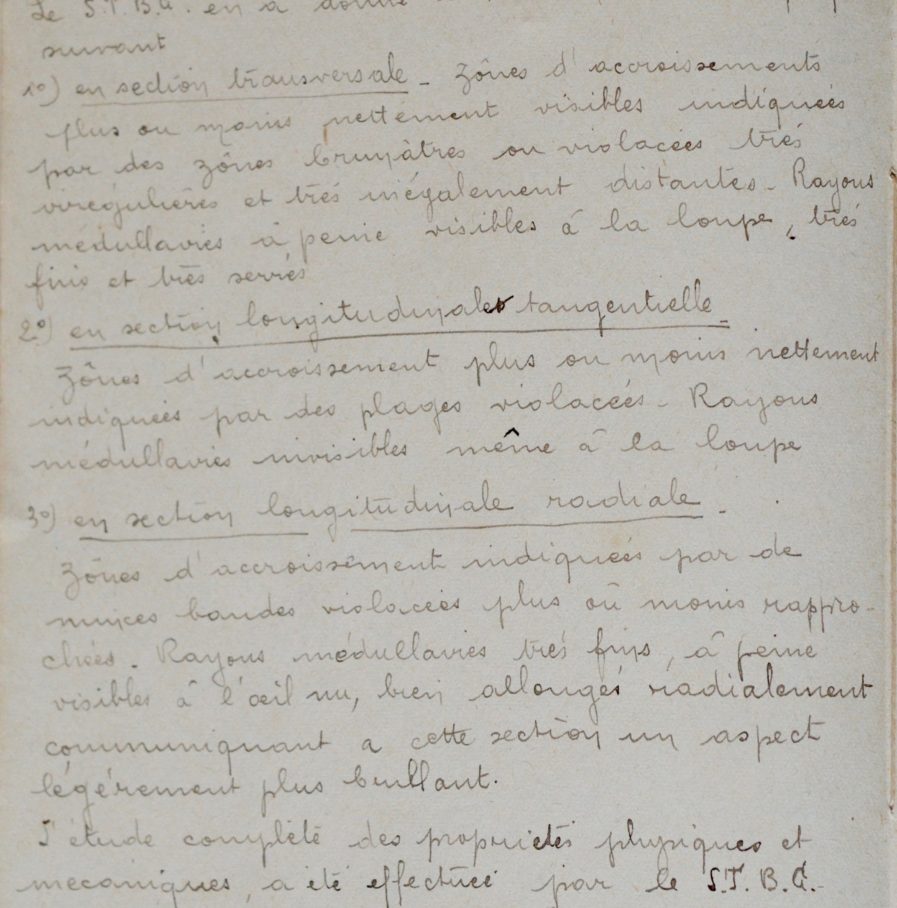 Le S.T.B.G. en a donné
suivant
1°) en section transversale - zônes d'accroissements
plus ou moins nettement visibles indiquées
par des zônes brunâtres ou violacées très
irrégulières et très inégalement distantes - Rayons
médullaires à peine visibles à la loupe, très
fins et très serrés
2°) en section longitudinale tangentielle -
Zônes d'accroissement plus ou moins nettement
indiquées par des plages violacées - Rayons
médullaires invisibles même à la loupe
3°) en section longitudinale radiale -
Zônes d'accroissement indiquées par de
minces bandes violacées plus où moins rappro-
chées. Rayons médullaires très fins, à peine
visibles à l'œil nu, bien allongés radialement
communiquant a cette section un aspect
légérement plus brillant.
L'étude complète des propriétés physiques et
mécaniques, a été effectuée par le S.T.B.G.-